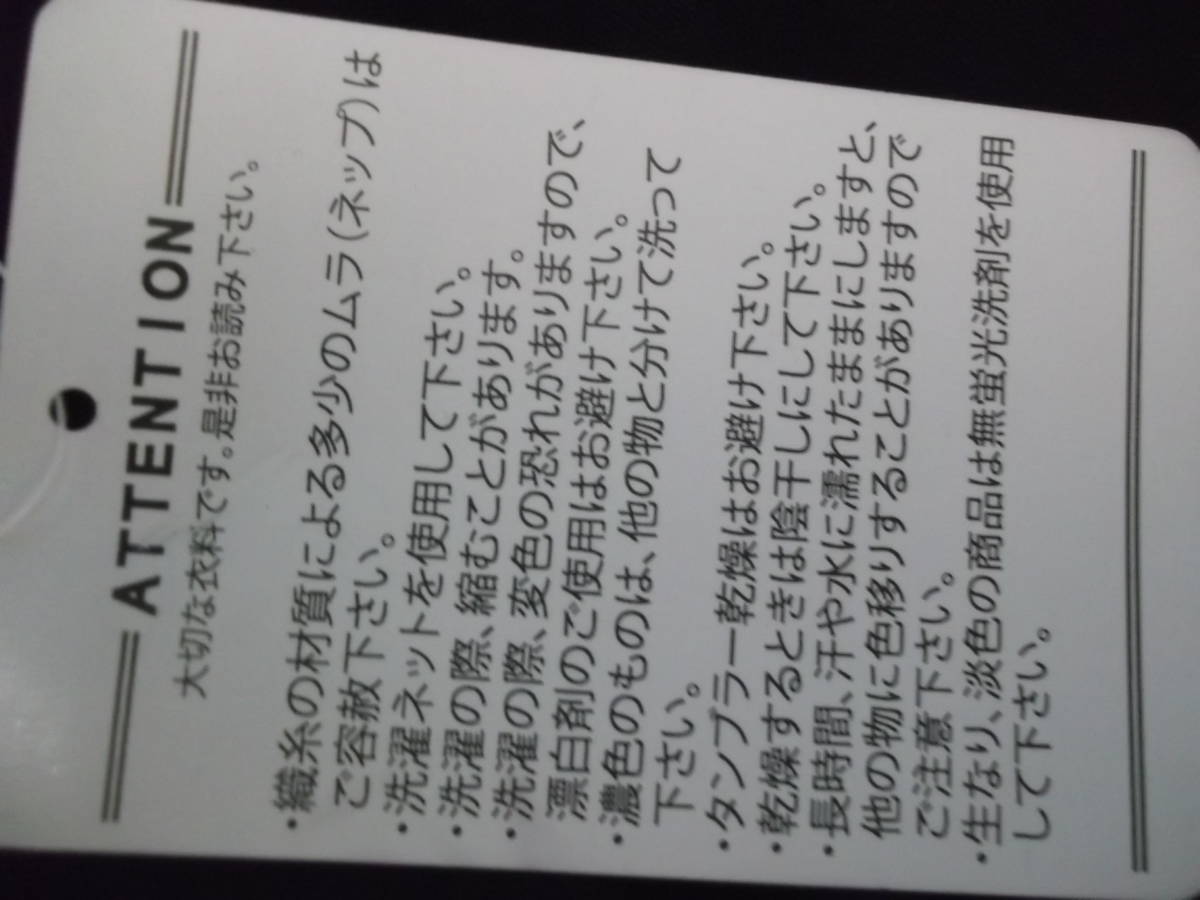 ATTENTION
大切な衣料です。是非お読み下さい。
・織糸の材質による多少のムラ(ネップ)は
ご容赦下さい。
・洗濯ネットを使用して下さい。
・洗濯の際、縮むことがあります。
・洗濯の際、変色の恐れがありますので、
漂白剤のご使用はお避け下さい。
・濃色のものは、他の物と分けて洗って
下さい。
・タンブラー乾燥はお避け下さい。
・乾燥するときは陰干しにして下さい。
・長時間、汗や水に濡れたままにしますと、
他の物に色移りすることがありますので
ご注意下さい。
・生なり、淡色の商品は無蛍光洗剤を使用
して下さい。